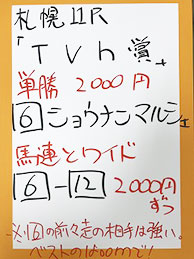 札幌11R
「TVh賞」
単勝 2000円
6 ショウナンマルシェ
馬連とワイド
6-12 2000円
ずつ
※6の前々走の相手は強い。
ベストの1800mで!